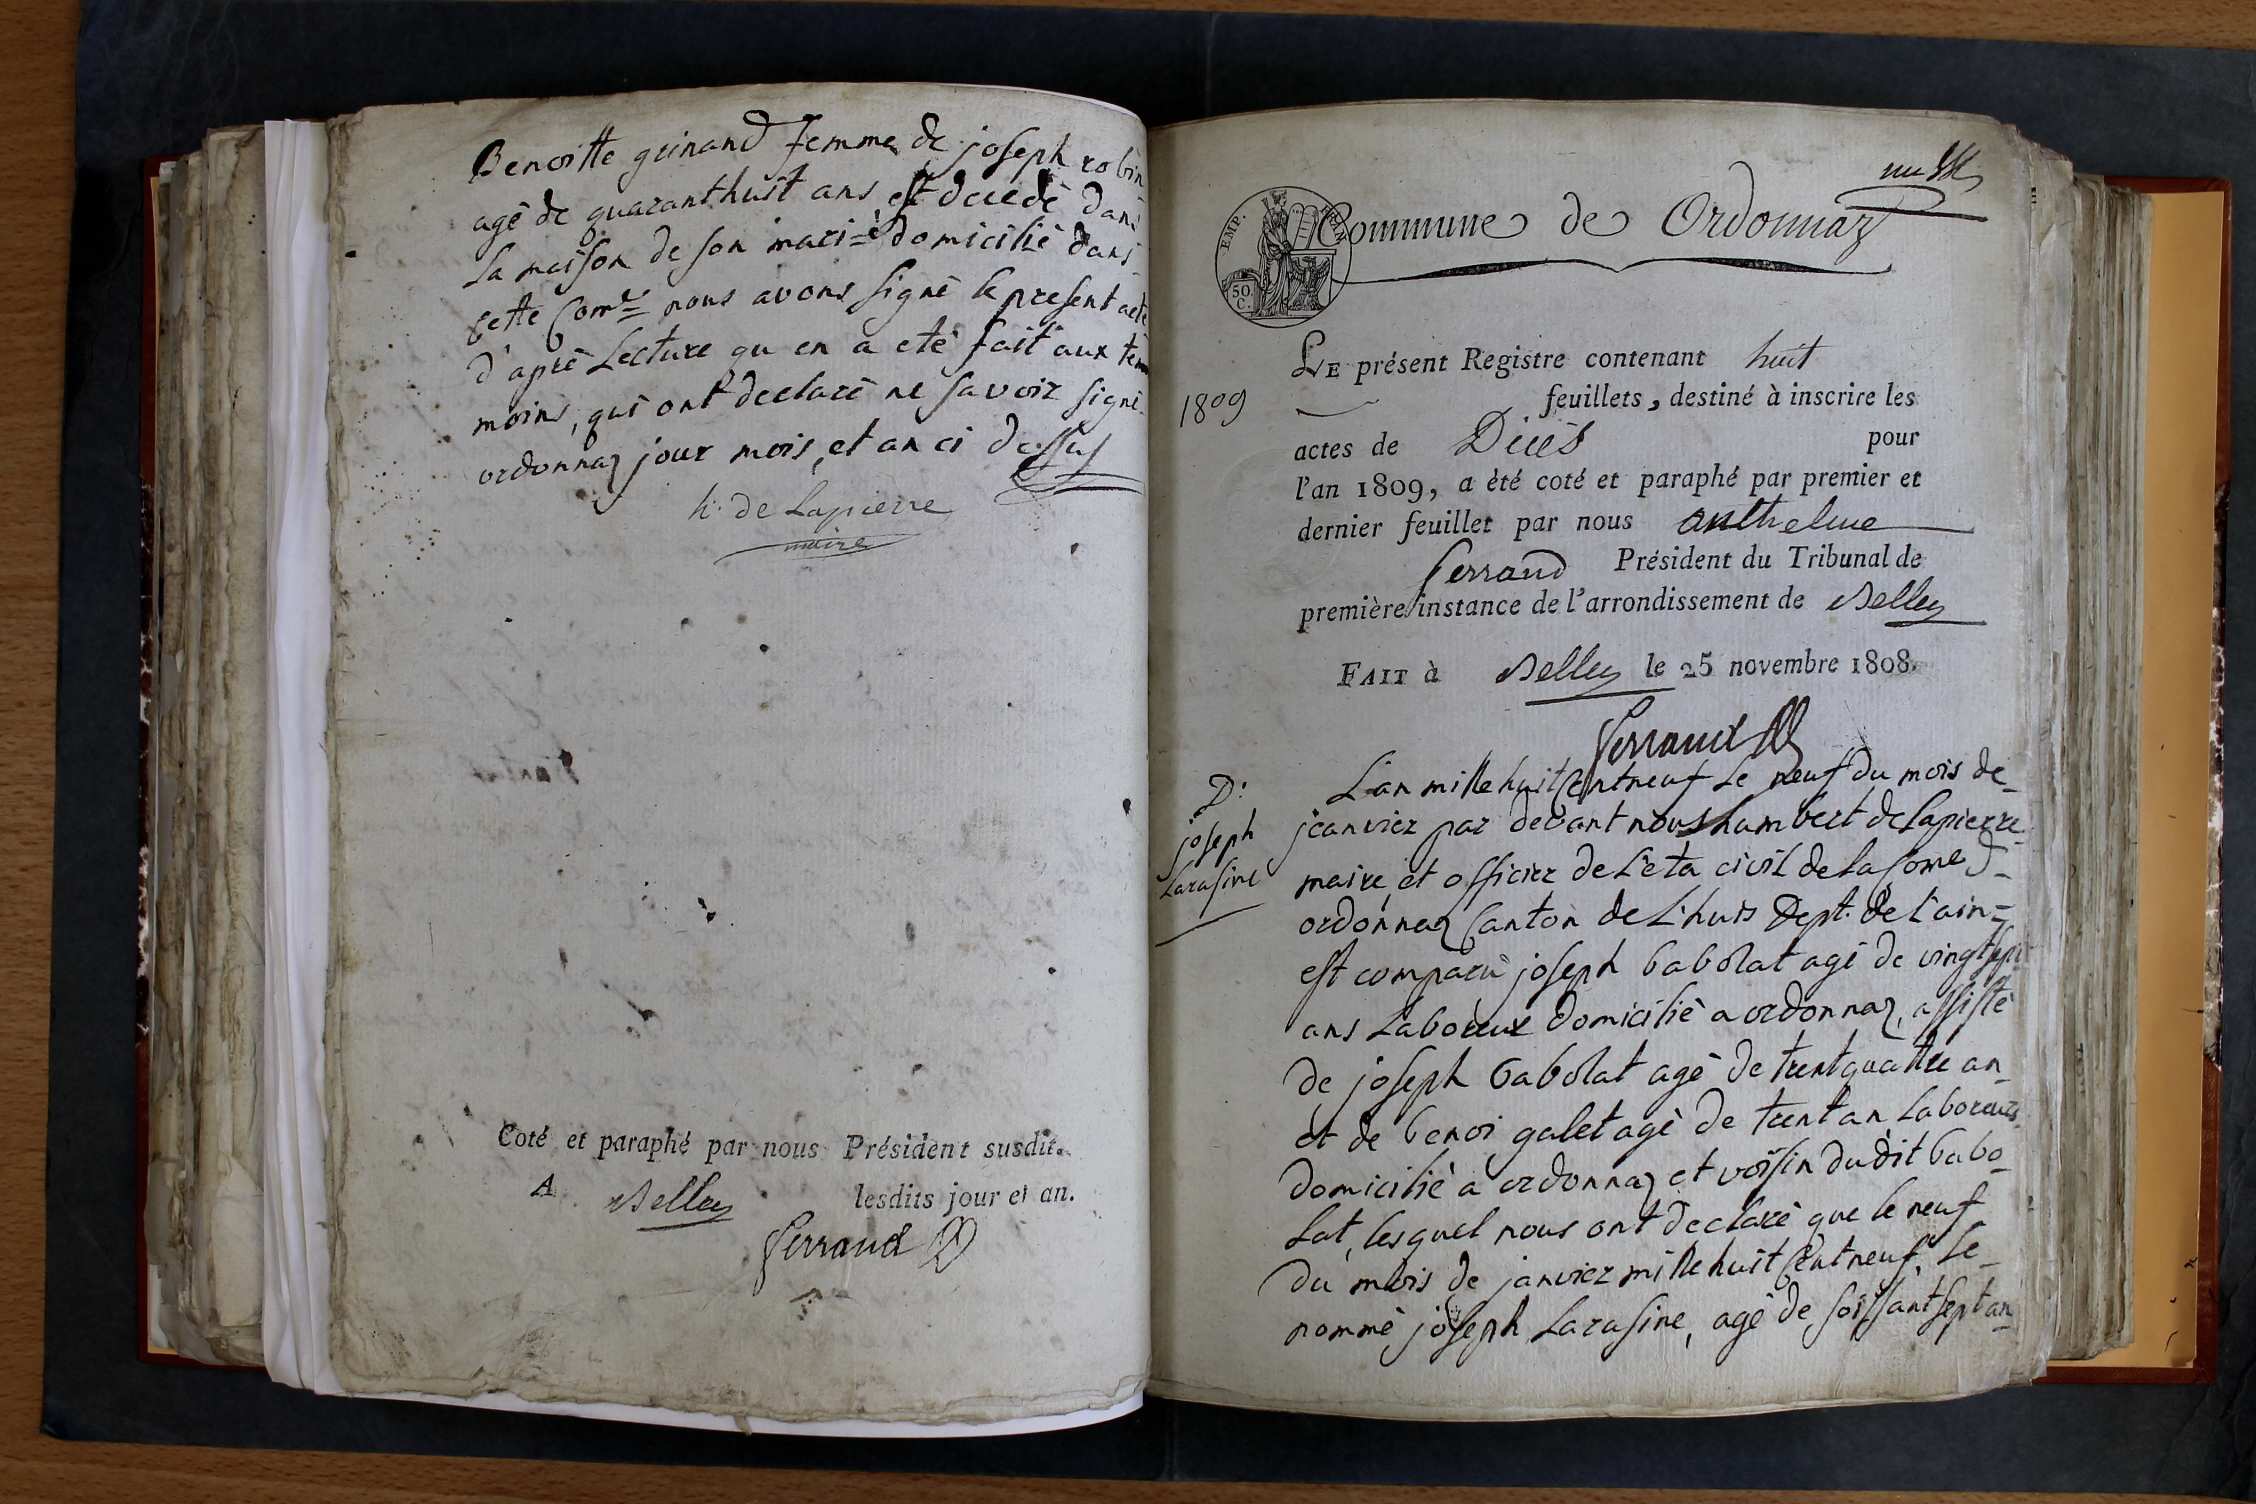 Benoitte guinand femme de joseph robin
agé de quaranthuit ans est decedé dans
la maison de son marié domicilié dans
cette Com.e nous avons signé le present acte
d'aprè Lecture qu en a eté fait aux té
moins, qui ont declaré ne savoir signé.
ordonnaz jour mois, et an ci dessus
h. de Lapierre
maire
Coté et paraphé par nous Président susdit.
A Belley lesdits jour et an.
Ferrand
un
EMP. FRAN.
50 C.
Commune de Ordonnaz
1809
LE présent Registre contenant huit
feuillets, destiné à inscrire les
actes de Décès pour
l'an 1809, a été coté et paraphé par premier et
dernier feuillet par nous anthelme
ferrand Président du Tribunal de
première instance de l'arrondissement de Belley
FAIT à Belley le 25 novembre 1808.
Ferrand
D:
joseph
Larasine
L'an mille huit Cent neuf Le neuf du mois de
jeanvier par devant nous humbert de Lapierre
maire, et officier de L'eta civil de la Come d
ordonnaz Canton de L'huis Dept. de L'ain
est comparu joseph babolat agé de vingt sept
ans Laboreur domicilié a ordonnaz, assisté
de joseph babolat agé de trentquattre an
et de benoi galet agé de trent an Laboreurs
domicilié a ordonnaz et voisin dudit babo
lat, lesquel nous ont declaré que le neuf
du mois de janvier mille huit Cent neuf, Le
nommé joseph Larasine, agé de soissant sept an